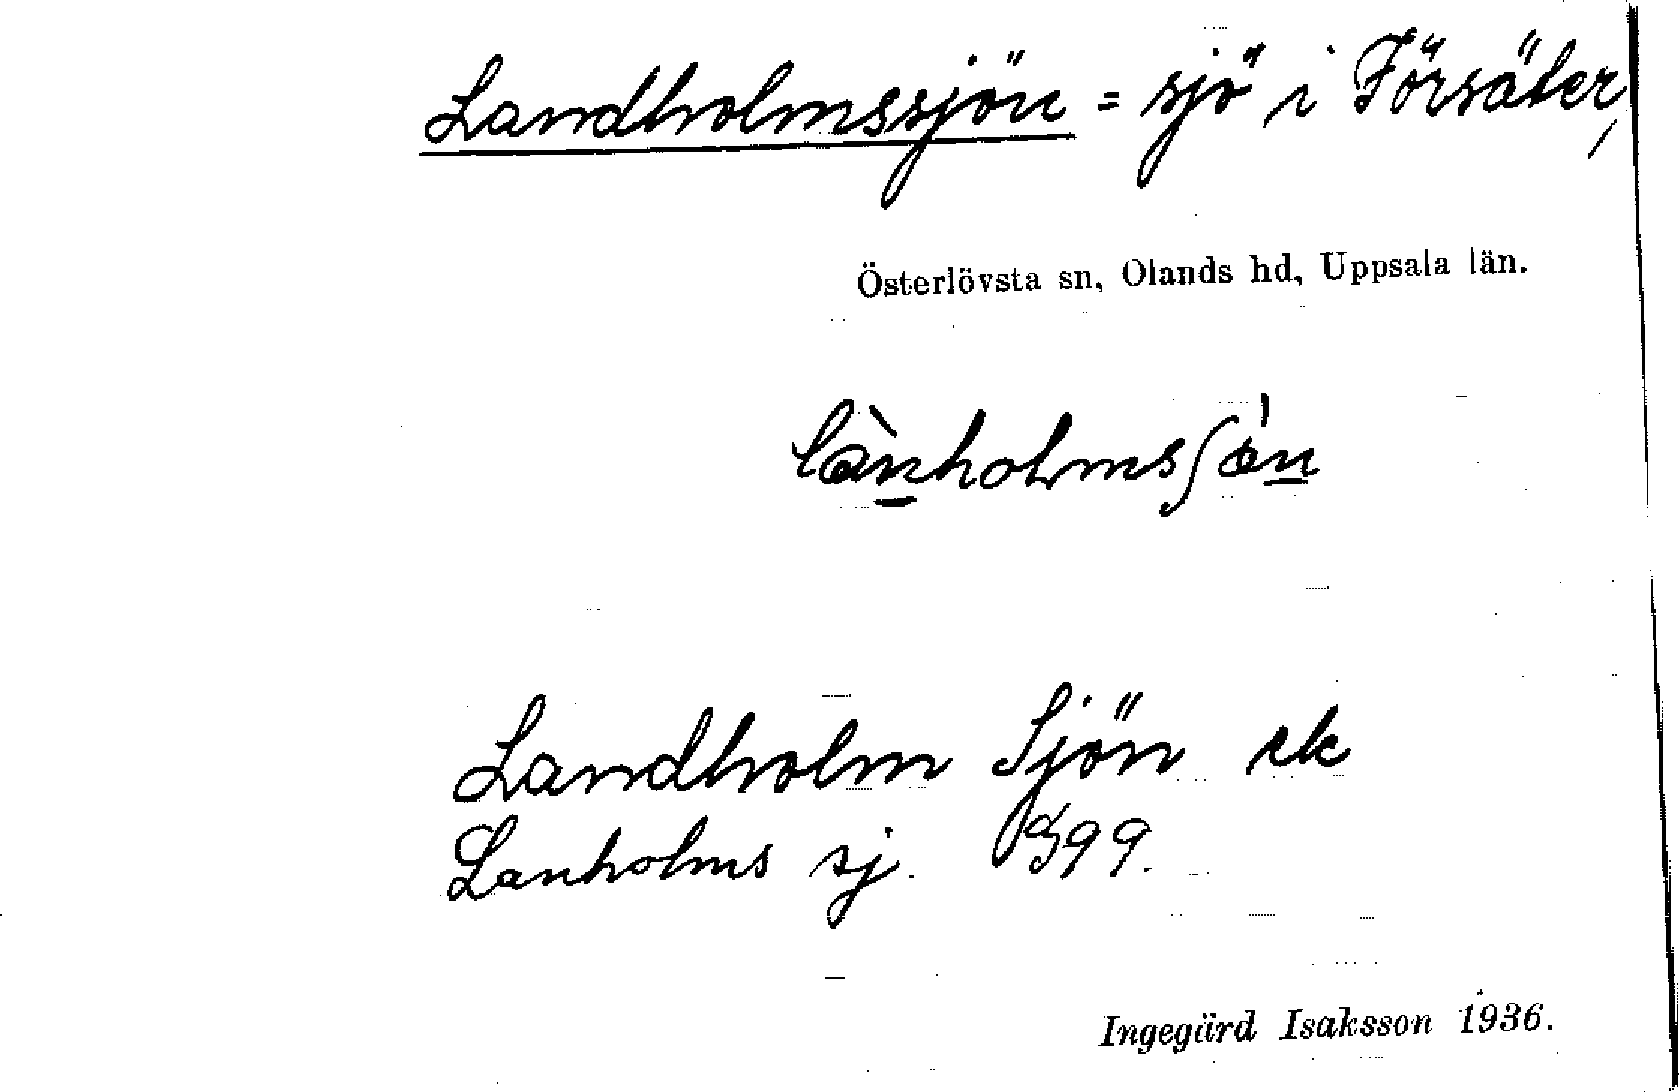 Landholmssjön = sjö i Försäter,
Österlövsta sn, Olands hd, Uppsala län.
lànholmsʃön
Landholm Sjön ek
Lanholms sj. 99.
Ingegärd Isaksson 1936.